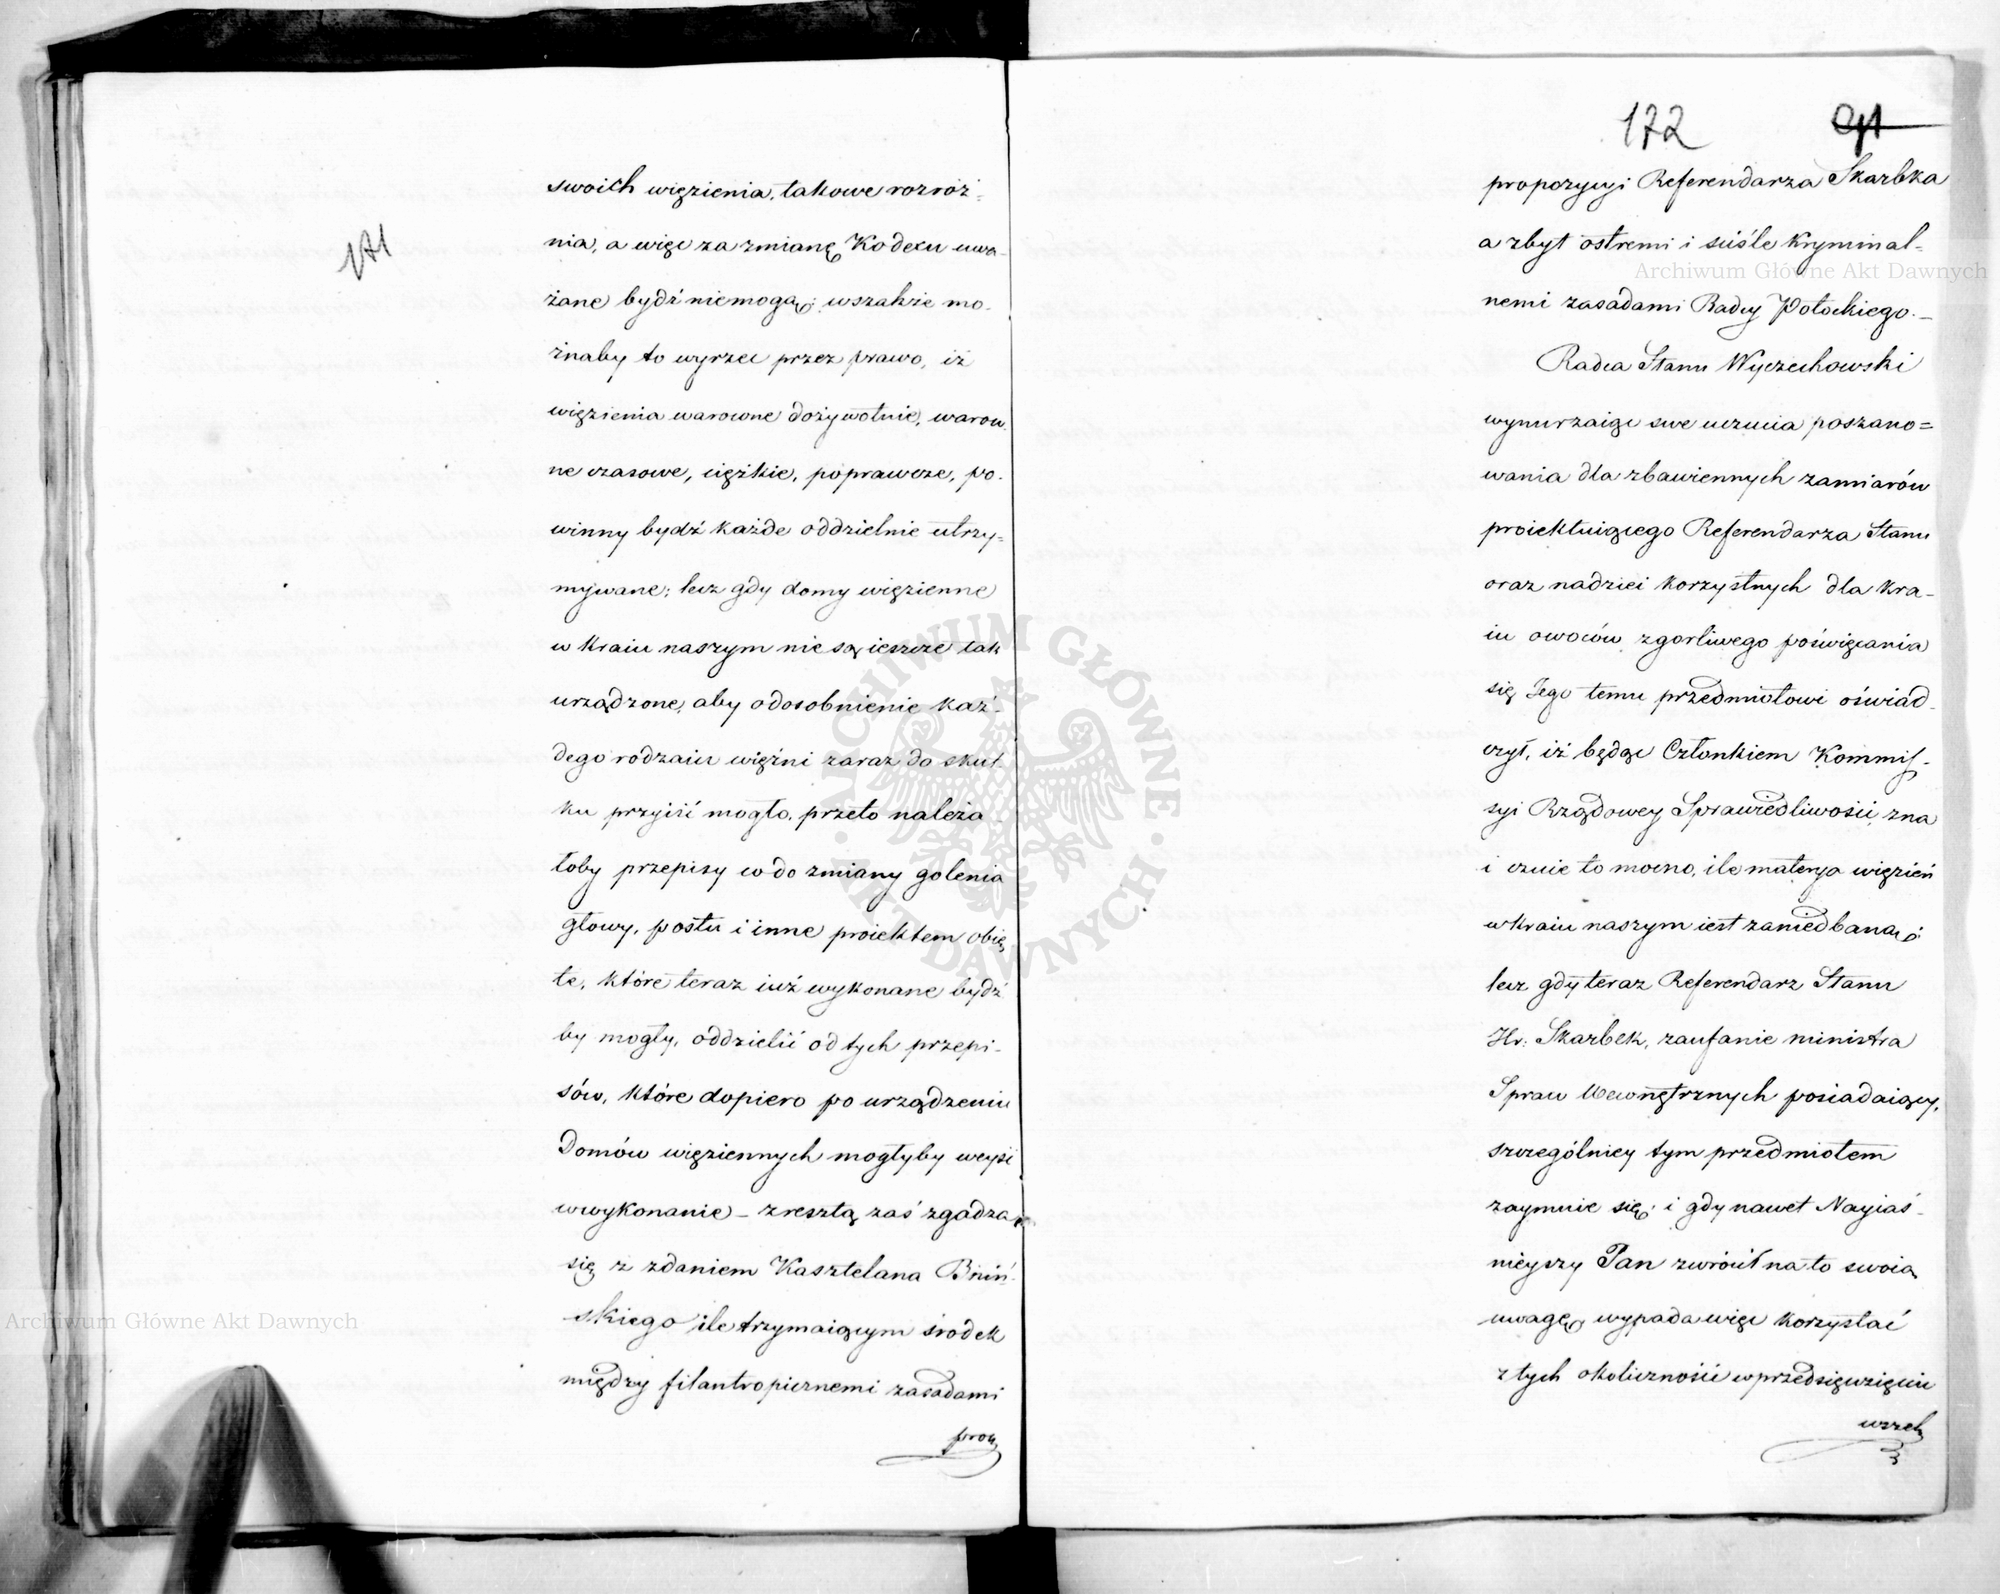 171
swoich więzienia, takowe rozróż-
nia, a więc za zmianę Kodexu uwa-
żane bydź niemogą; wszakże mo-
żnaby to wyrzec przez prawo, iż
więzienia warowne dożywotnie, warow-
ne czasowe, ciężkie, poprawcze, po-
winny bydź każde oddzielnie utrzy-
mywane; lecz gdy domy więzienne
w kraiu naszym nie są ieszcze tak
urządzone, aby odosobnienie każ-
dego rodzaiu więźni zaraz do skut
ku przyiść mogło, przeto należa-
łoby przepisy co do zmiany golenia
głowy, postu i inne proiektem obię
te, które teraz iuż wykonane bydź
by mogły, oddzielić od tych przepi-
sów, które dopiero po urządzeniu
Domów więziennych mogłyby weyść
w wykonanie – zresztą zaś zgadza
się z zdaniem Kasztelana Bniń-
skiego ile trzymaiącym środek
między filantropicznemi zasadami
172
propozycyi Referendarza Skarbka
a zbyt ostremi i ściśle kryminal-
nemi zasadami Radcy Potockiego. –
Radca Stanu Wyczechowski
wynurzaiąc swe uczucia poszano=
wania dla zbawiennych zamiarów
proiektuiącego Referendarza Stanu
oraz nadziei korzystnych dla kra-
iu owoców zgorliwego poświęcania
się Jego temu przedmiotowi oświad-
czył, iż będąc Członkiem Kommis-
syi Rządowey Sprawiedliwości, zna
i czuie to mocno, ile materya więzień
w kraiu naszym iest zaniedbaną;
lecz gdy teraz Referendarz Stanu
Hr: Skarbek, zaufanie ministra
Spraw Wewnętrznych posiadaiący,
szczególniey tym przedmiotem
zaymuie się; i gdy nawet Nayiaś-
nieyszy Pan zwrócił na to swoią
uwagę, wypada więc korzystać
z tych okoliczności w przedsięwzięciu
Archiwum Główne Akt Dawnych
Archiwum Główne Akt Dawnych
ARCHIWUM GŁÓWNE · AKT DAWNYCH ·